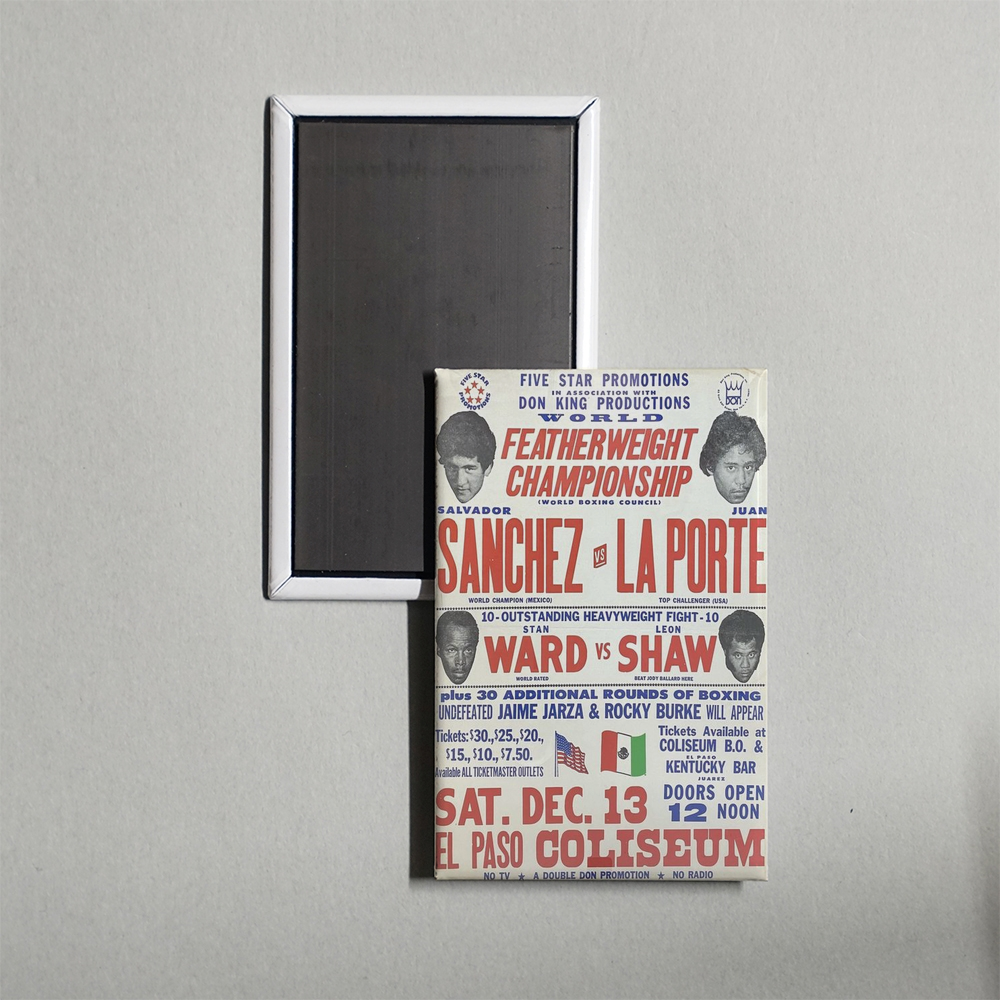 FIVE STAR PROMOTIONS
FIVE STAR PROMOTIONS
IN ASSOCIATION WITH
DON KING PRODUCTIONS
DON
WORLD
FEATHERWEIGHT
CHAMPIONSHIP
(WORLD BOXING COUNCIL)
SALVADOR JUAN
SANCHEZ VS LA PORTE
WORLD CHAMPION (MEXICO) TOP CHALLENGER (USA)
10-OUTSTANDING HEAVYWEIGHT FIGHT-10
STAN LEON
WARD VS SHAW
WORLD RATED BEAT JODY BALLARD HERE
plus 30 ADDITIONAL ROUNDS OF BOXING
UNDEFEATED JAIME JARZA & ROCKY BURKE WILL APPEAR
Tickets: $30., $25., $20.,
$15., $10., $7.50.
Available ALL TICKETMASTER OUTLETS
Tickets Available at
COLISEUM B.O. &
EL PASO
KENTUCKY BAR
JUAREZ
SAT. DEC. 13
DOORS OPEN
12 NOON
EL PASO COLISEUM
NO TV ★ A DOUBLE DON PROMOTION ★ NO RADIO